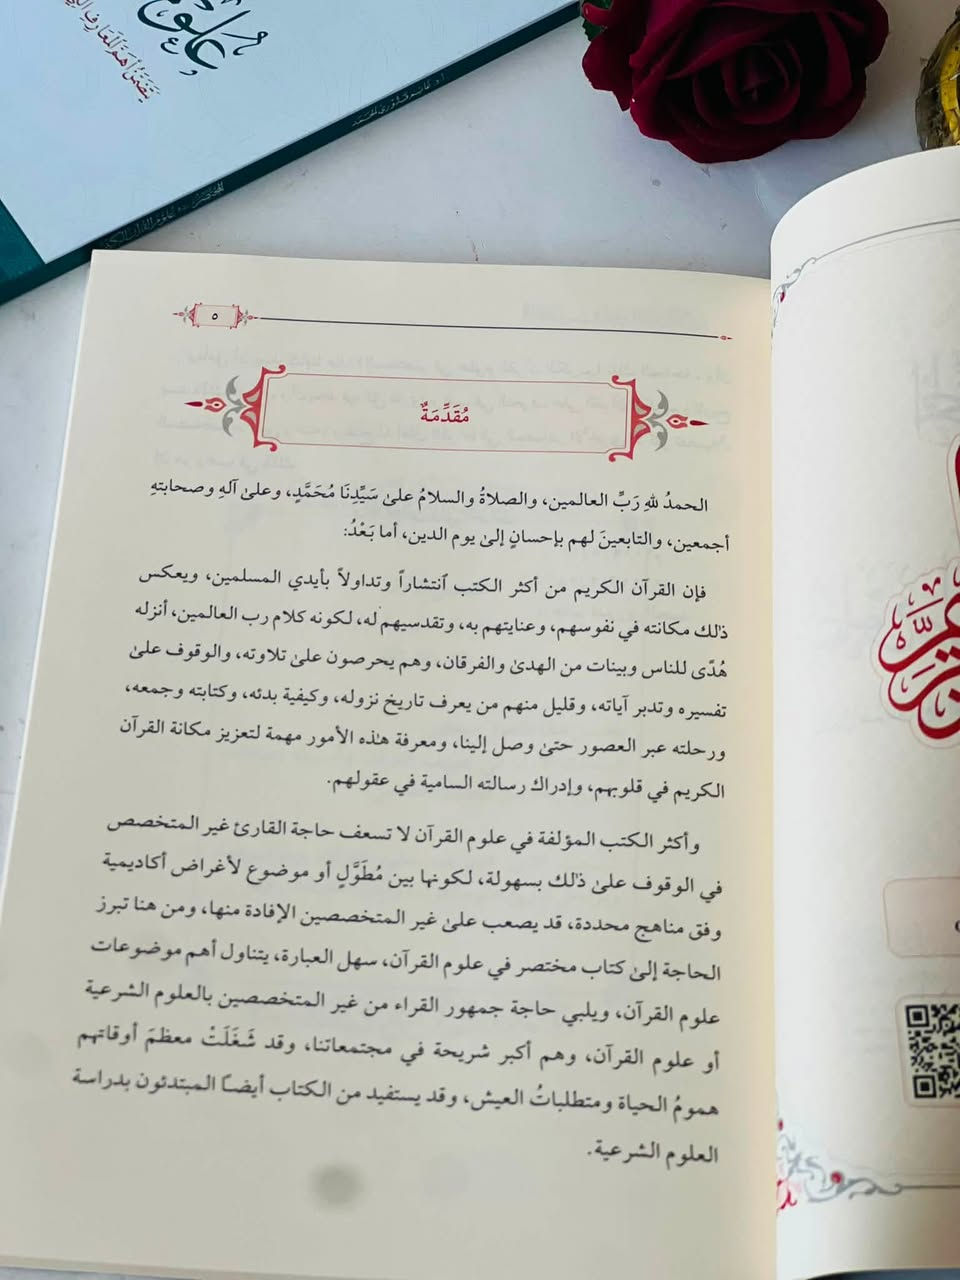 علوم
يتضمن أهم المعارف
المختصر في علوم القرآن الكريم
٥
مُقَدِّمَةٌ
الحمدُ للهِ رَبِّ العالمين، والصلاةُ والسلامُ علىٰ سَيِّدِنَا مُحَمَّدٍ، وعلىٰ آلهِ وصحابتهِ
أجمعين، والتابعينَ لهم بإحسانٍ إلىٰ يوم الدين، أما بَعْدُ:
فإن القرآن الكريم من أكثر الكتب ٱنتشاراً وتداولاً بأيدي المسلمين، ويعكس
ذٰلك مكانته في نفوسهم، وعنايتهم به، وتقدسيهم له، لكونه كلام رب العالمين، أنزله
هُدًى للناس وبينات من الهدىٰ والفرقان، وهم يحرصون علىٰ تلاوته، والوقوف علىٰ
تفسيره وتدبر آياته، وقليل منهم من يعرف تاريخ نزوله، وكيفية بدئه، وكتابته وجمعه،
ورحلته عبر العصور حتىٰ وصل إلينا، ومعرفة هٰذه الأمور مهمة لتعزيز مكانة القرآن
الكريم في قلوبهم، وإدراك رسالته السامية في عقولهم.
وأكثر الكتب المؤلفة في علوم القرآن لا تسعف حاجة القارئ غير المتخصص
في الوقوف علىٰ ذٰلك بسهولة، لكونها بين مُطَوَّلٍ أو موضوع لأغراض أكاديمية
وفق مناهج محددة، قد يصعب علىٰ غير المتخصصين الإفادة منها، ومن هنا تبرز
الحاجة إلىٰ كتاب مختصر في علوم القرآن، سهل العبارة، يتناول أهم موضوعات
علوم القرآن، ويلبي حاجة جمهور القراء من غير المتخصصين بالعلوم الشرعية
أو علوم القرآن، وهم أكبر شريحة في مجتمعاتنا، وقد شَغَلَتْ معظمَ أوقاتهم
همومُ الحياة ومتطلباتُ العيش، وقد يستفيد من الكتاب أيضاً المبتدئون بدراسة
العلوم الشرعية.